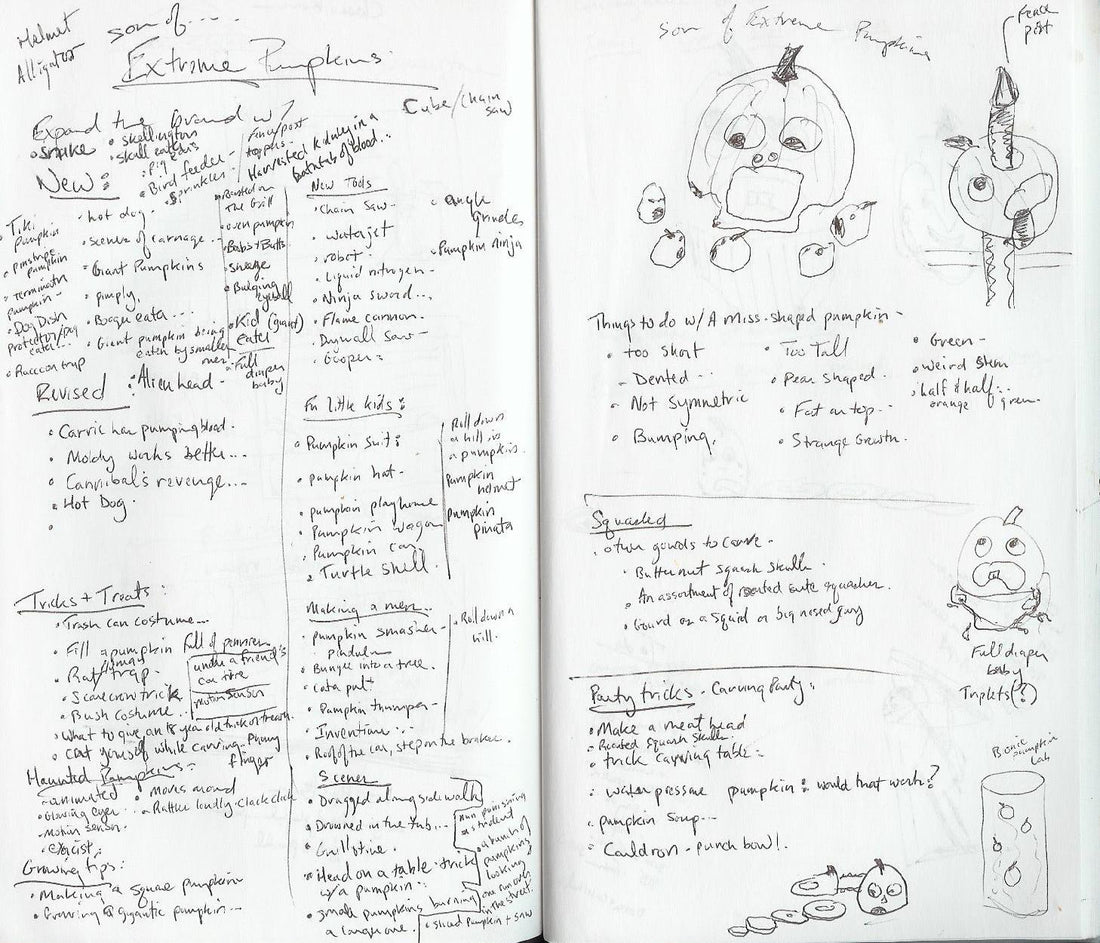 Helmet
Alligator
son of....
Extreme Pumpkins
Expand the brand w/
Cube/chain saw
• snake
• skellington
• skull
• Pig
• Bird feeder -
• Sprinkler
Fence/post toppers
Harvested kidney in a bathtub of blood...
New:
• Tiki Pumpkin
• Pinstripe pumpkin
• Terminator Pumpkin -
• Dog Dish protector/dog eater...
• Raccoon trap
• hot dog.
• scenes of carnage...
• Giant Pumpkins
• pimply,
• Booger eater...
• Giant pumpkin being eaten by smaller ones.
• Alien head -
• Roasted on The Grill
• oven pumpkin
• Bulging eyeball
• Kid (guard) eater
• Full diaper baby
New Tools
• Chain Saw -
• waterjet
• robot
• Liquid nitrogen -
• Ninja sword...
• Flame cannon.
• Drywall saw -
• Gooper:
• angle grinder
• Pumpkin ninja
Revised
• Carrie has pumping blood.
• Moldy works better...
• Cannibal's revenge...
• Hot Dog.
For little kids:
• Pumpkin suit:
• pumpkin hat -
• pumpkin playhouse
• Pumpkin wagon
• Pumpkin car
• Turtle shell.
Roll down a hill in a pumpkin.
Pumpkin helmet
Pumpkin pinata
Tricks + Treats:
• Trash can costume...
• Fill a pumpkin full of
• Rat/human trap.
• Scarecrow trick
• Bush costume...
under a friend's car tire
motion sensor
• What to give an 18 year old trick or treater.
• Cut yourself while carving - Phony finger
Haunted Pumpkins:
• animated
• Glowing eyes
• Motion sensor.
• exorcist
• moves around
• Rattles loudly - clack clack
Growing tips:
• Making a square pumpkin
• Growing a gigantic pumpkin...
Making a mess...
• pumpkin smasher - pendulum
• Bungee into a tree.
• catapult
• Pumpkin thumper -
• Inventions:
• Roof of the car, step on the brakes.
• Roll down hill.
Scenes
• Dragged along sidewalk
• Drowned in the tub...
• Guillotine.
• Head on a table - trick w/ a pumpkin:
• small pumpkins burning a large one.
• a bunch of pumpkins looking
one run over in the street.
• sliced pumpkin + saw
son of Extreme Pumpkins
Fence post
Things to do w/ A miss-shaped pumpkin -
• too short
- Dented..
• Not Symmetric
• Bumping.
• Too Tall
• Pear Shaped.
• Fat on top..
• Strange Growth.
• Green -
• weird stem
• half & half: orange green.
Squashed
• other gourds to carve -
• Butternut squash skulls.
• An assortment of roasted cute squashes.
• Gourd as a squid or big nosed guy
Full diaper baby
Triplets(?)
Party tricks - Carving Party:
• Make a meat head
• Roasted Squash Skulls.
• trick carving table:
• water pressure pumpkin: would that work?
• pumpkin soup...
• Cauldron - punch bowl!.
Bionic pumpkin Lab